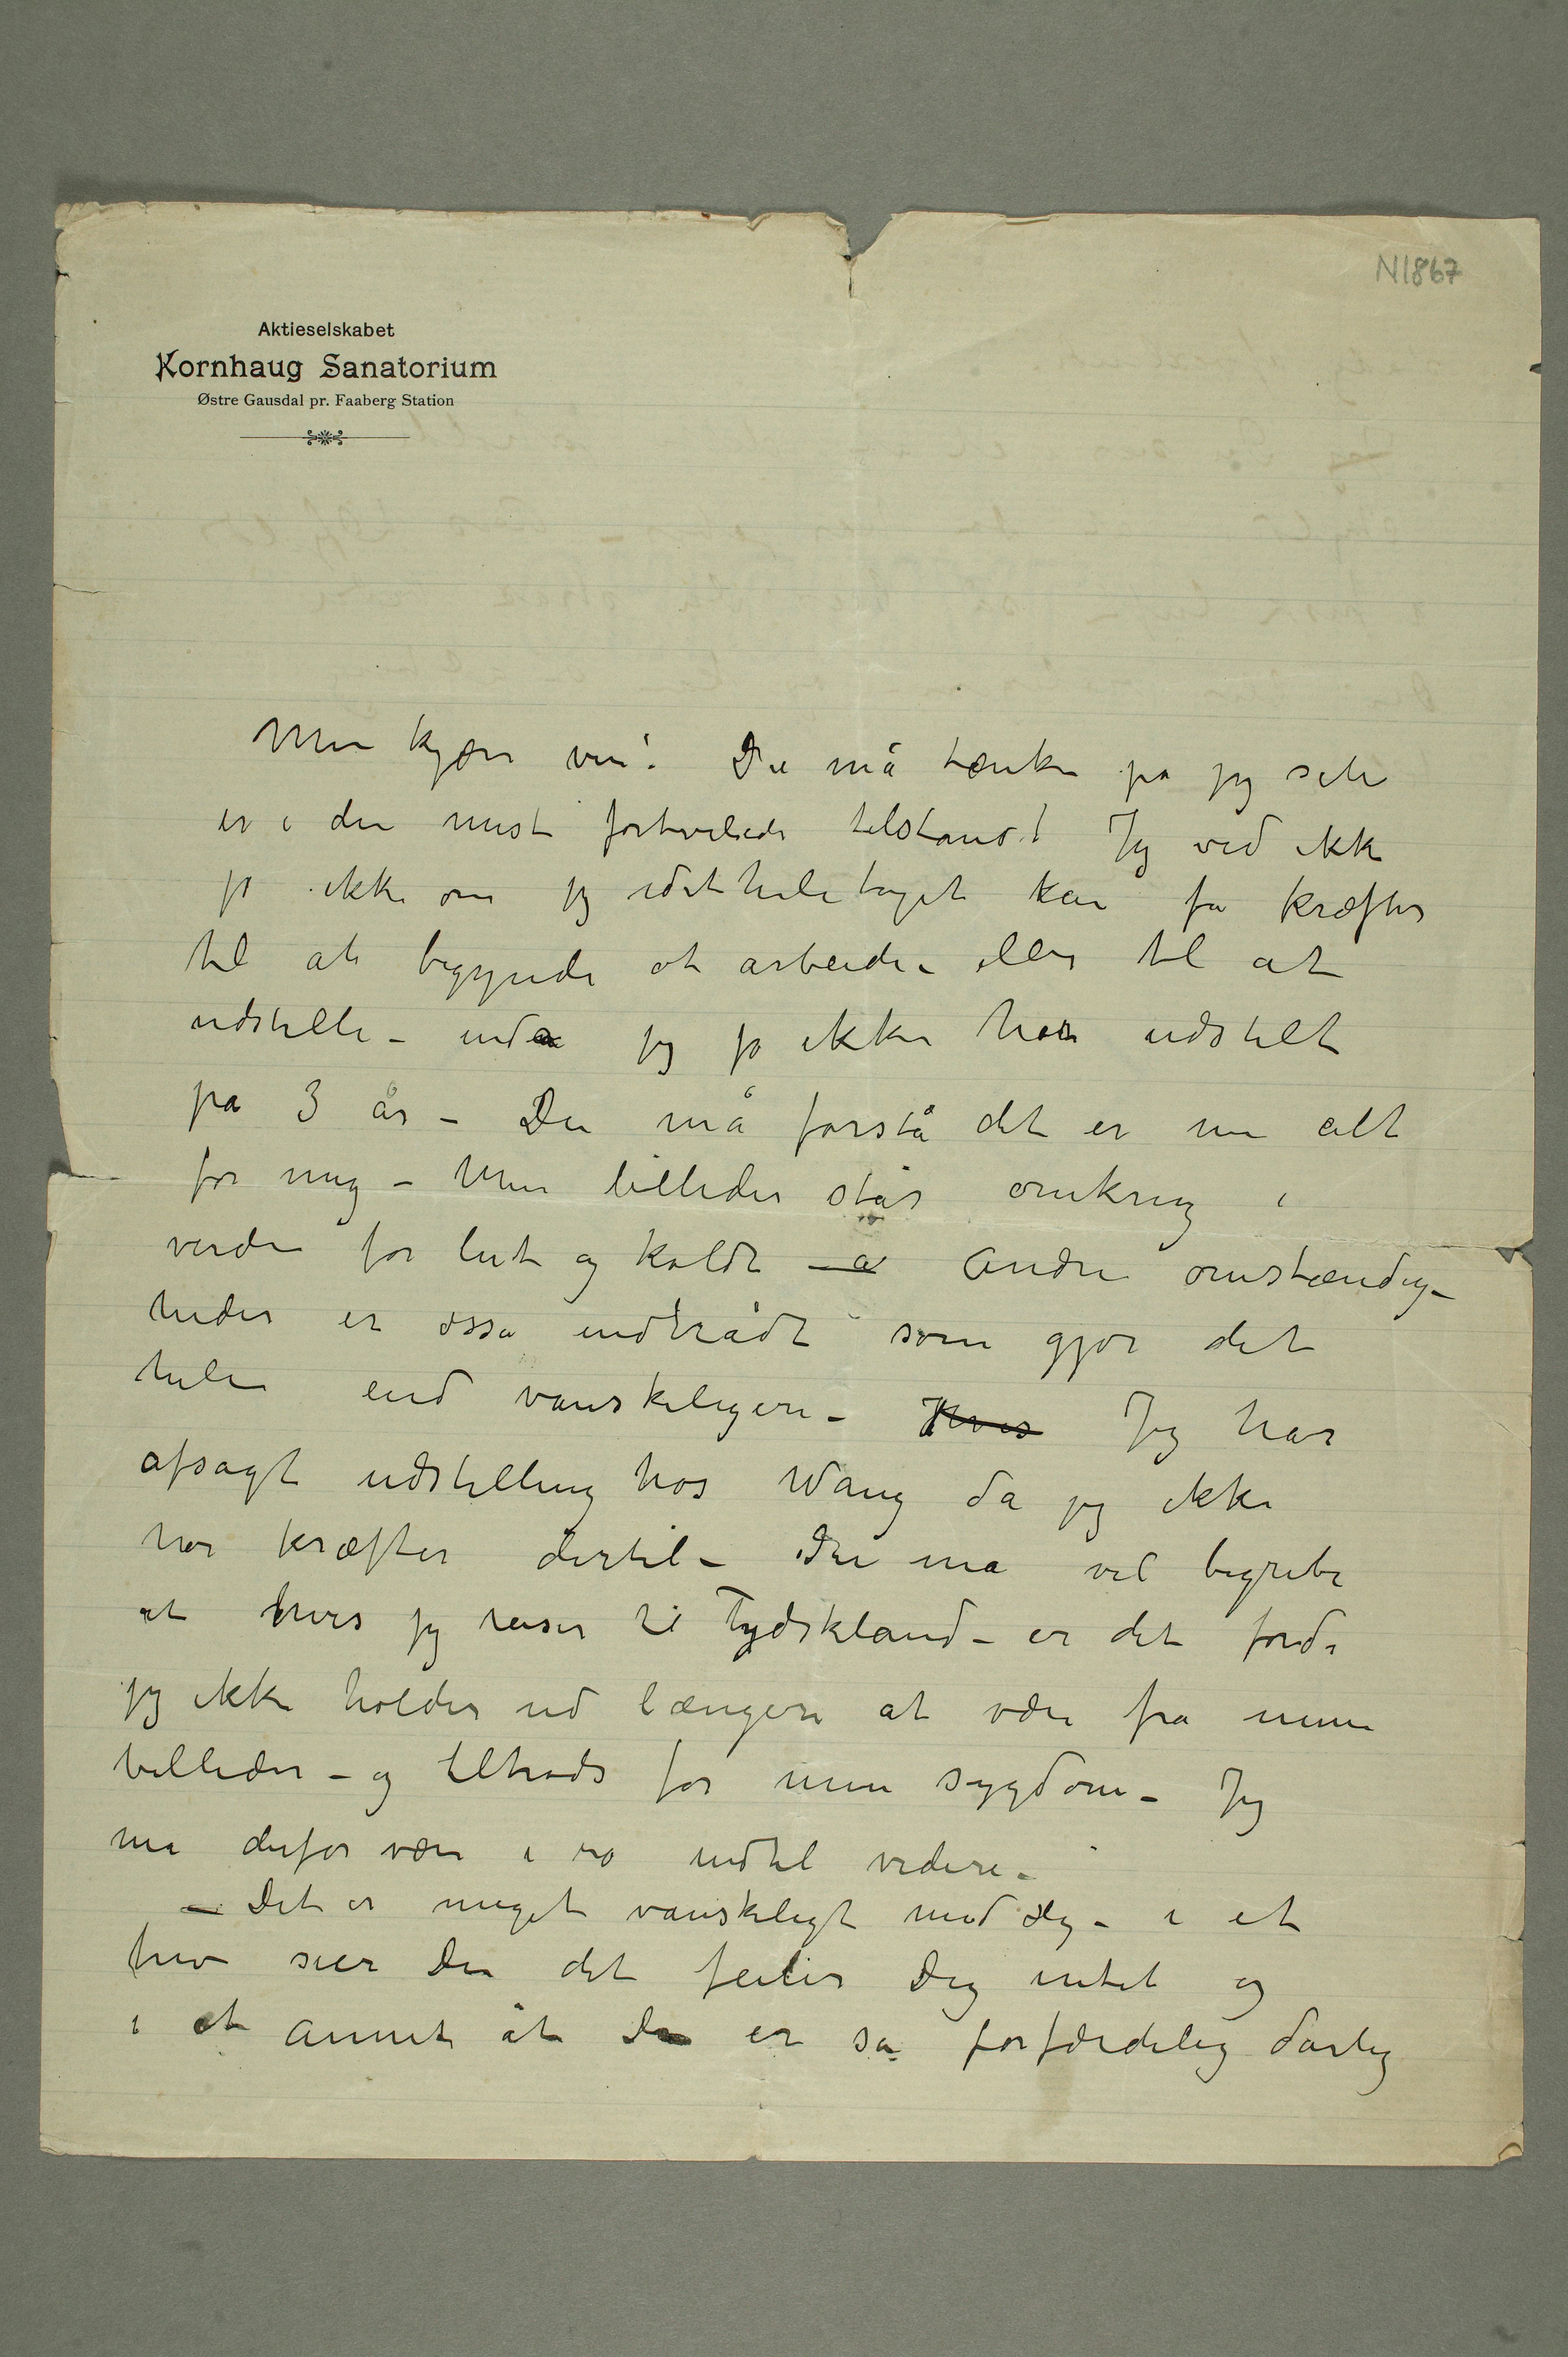 N1867
Aktieselskabet
Kornhaug Sanatorium
Østre Gausdal pr. Faaberg Station
Min kjære ven! Du må tænke på jeg selv
er i den mest fortvilede tilstand! Jeg ved ikke
jo ikke om jeg idethele taget kan få kræfter
til at begynde at arbeide – eller til at
udstille – jeg jo ikke har udstilt
på 3 år – Du må forstå det er nu alt
for mig – Mine billeder står omkring i
verden for lut og koldt – a Andre omstændig-
heder er osså indtrådt som gjør det
hele end vanskeligere – Hvis Jeg har
afsagt udstilling hos Wang da jeg ikke
har kræfter dertil – Du må vel begribe
at hvis jeg reiser til Tydskland – er det fordi
jeg ikke holder ud længere at være fra mine
billeder – og tiltrods for min sygdom – Jeg
må derfor være i ro indtil videre –
– Det er meget vanskeligt med Dig – i et
brev sier Du det feiler Dig intet og
i et annet at Du er så forfærdelig dårlig